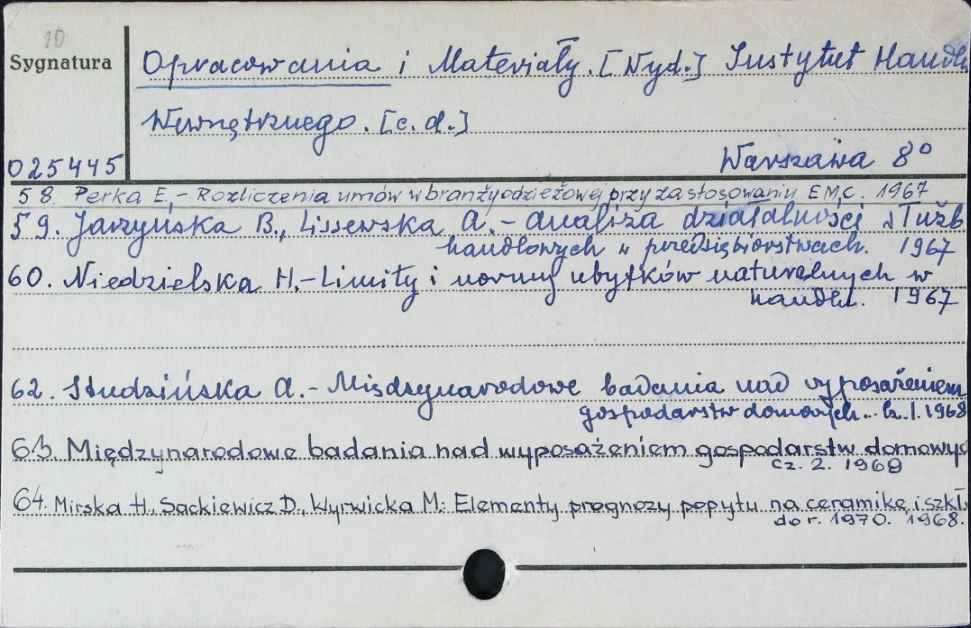 10
Sygnatura
Opracowania i Materiały. [Wyd.] Instytut Handlu
Wewnętrznego. [c.d.]
025445
Warszawa 8°
58. Perka E. - Rozliczenia umów w branży odzieżowej przy zastosowaniu EMC. 1967
59. Jarzyńska B., Lissewska A. - Analiza działalności służb
handlowych w przedsiębiorstwach. 1967
60. Niedzielska H. - Limity i normy ubytków naturalnych w
handlu. 1967
62. Studzińska A. - Międzynarodowe badania nad wyposażeniem
gospodarstw domowych. Cz. 1. 1968
63. Międzynarodowe badania nad wyposażeniem gospodarstw domowyc
cz. 2. 1968
64. Mirska H., Sackiewicz D., Wyrwicka M: Elementy prognozy popytu na ceramikę i szkł
do r. 1970. 1968.